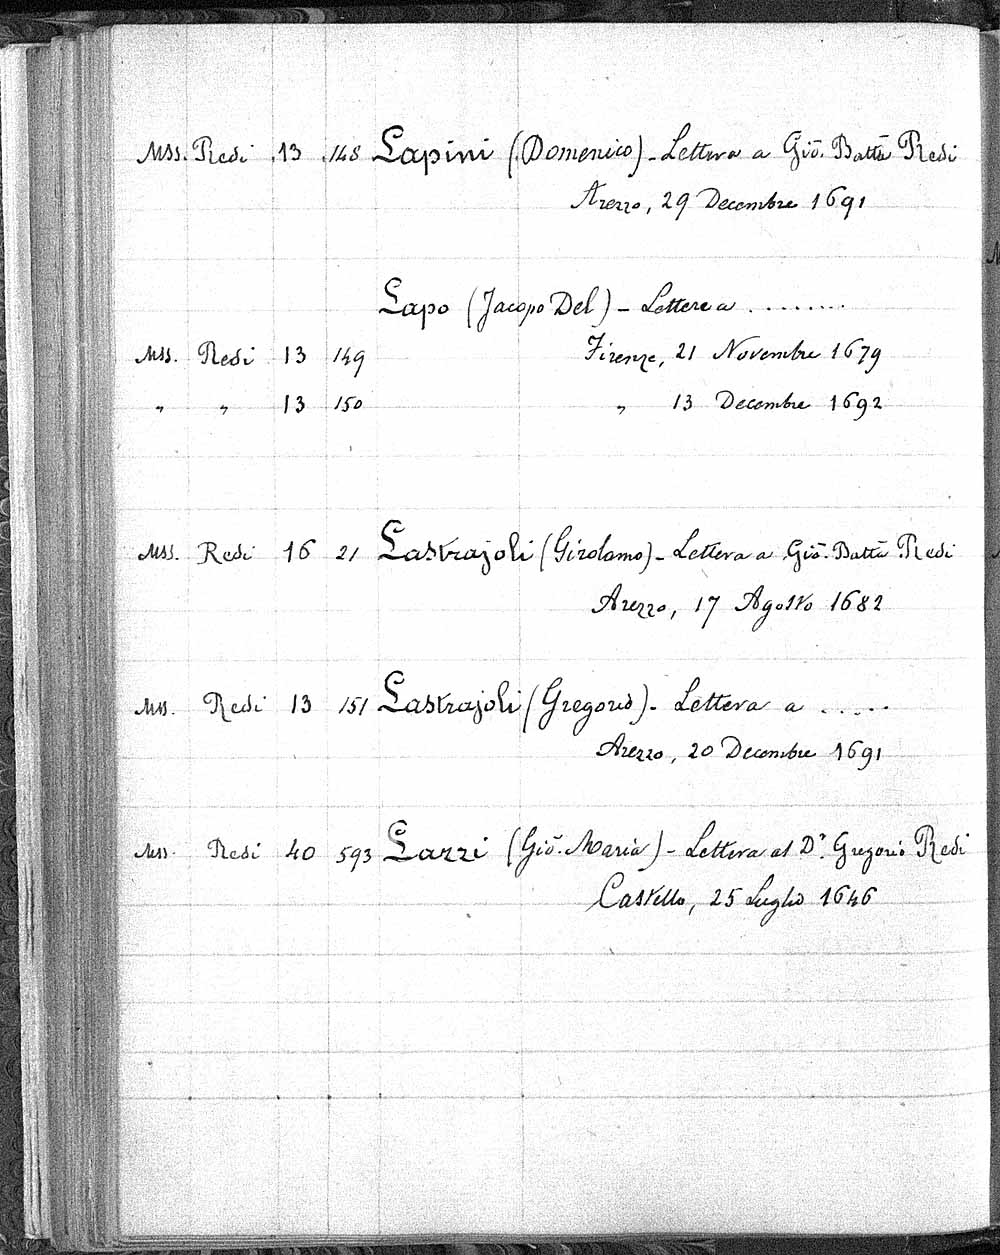 Mss. Redi 13 148 Lapini (Domenico) - Lettera a Gio. Batta Redi
Arezzo, 29 Decembre 1691
Lapo (Jacopo Del) - Lettere a ........
Mss. Redi 13 149 Firenze, 21 Novembre 1679
" " 13 150 " 13 Decembre 1692
Mss. Redi 16 21 Lastrajoli (Girolamo) - Lettera a Gio. Batta Redi
Arezzo, 17 Agosto 1682
Mss. Redi 13 151 Lastrajoli (Gregorio) - Lettera a .....
Arezzo, 20 Decembre 1691
Mss. Redi 40 593 Lazzi (Gio. Maria) - Lettera al Dr. Gregorio Redi
Castello, 25 Luglio 1646